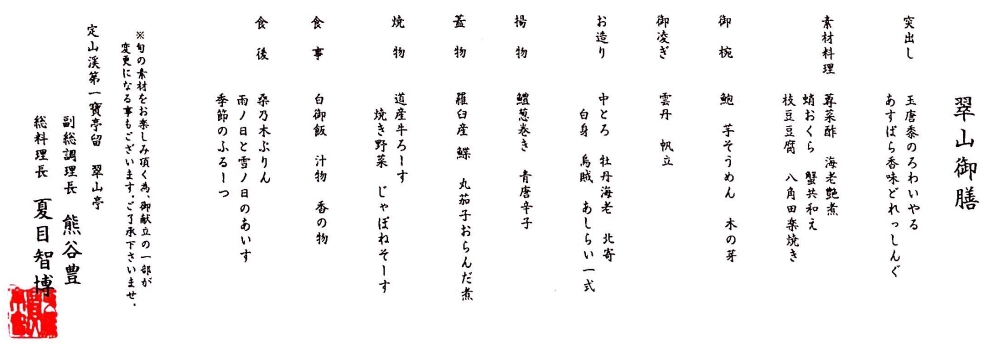 翠山御膳
突出し　玉唐黍のろわいやる
あすぱら香味どれっしんぐ
素材料理　蓴菜酢　海老艶煮
蛸おくら　蟹共和え
枝豆豆腐　八角田楽焼き
御椀　鮑　芋そうめん　木の芽
御凌ぎ　雲丹　帆立
お造り　中とろ　牡丹海老　北寄
白身　烏賊　あしらい一式
揚物　鱧葱巻き　青唐辛子
蓋物　羅臼産　鰈　丸茄子おらんだ煮
焼物　道産牛ろーす
焼き野菜　じゃぽねそーす
食事　白御飯　汁物　香の物
食後　桑乃木ぷりん
雨ノ日と雪ノ日のあいす
季節のふるーつ
※旬の素材をお楽しみ頂く為、御献立の一部が
変更になる事もございます。ご了承下さいませ。
定山渓第一寶亭留　翠山亭
副総調理長　熊谷豊
総料理長　夏目智博